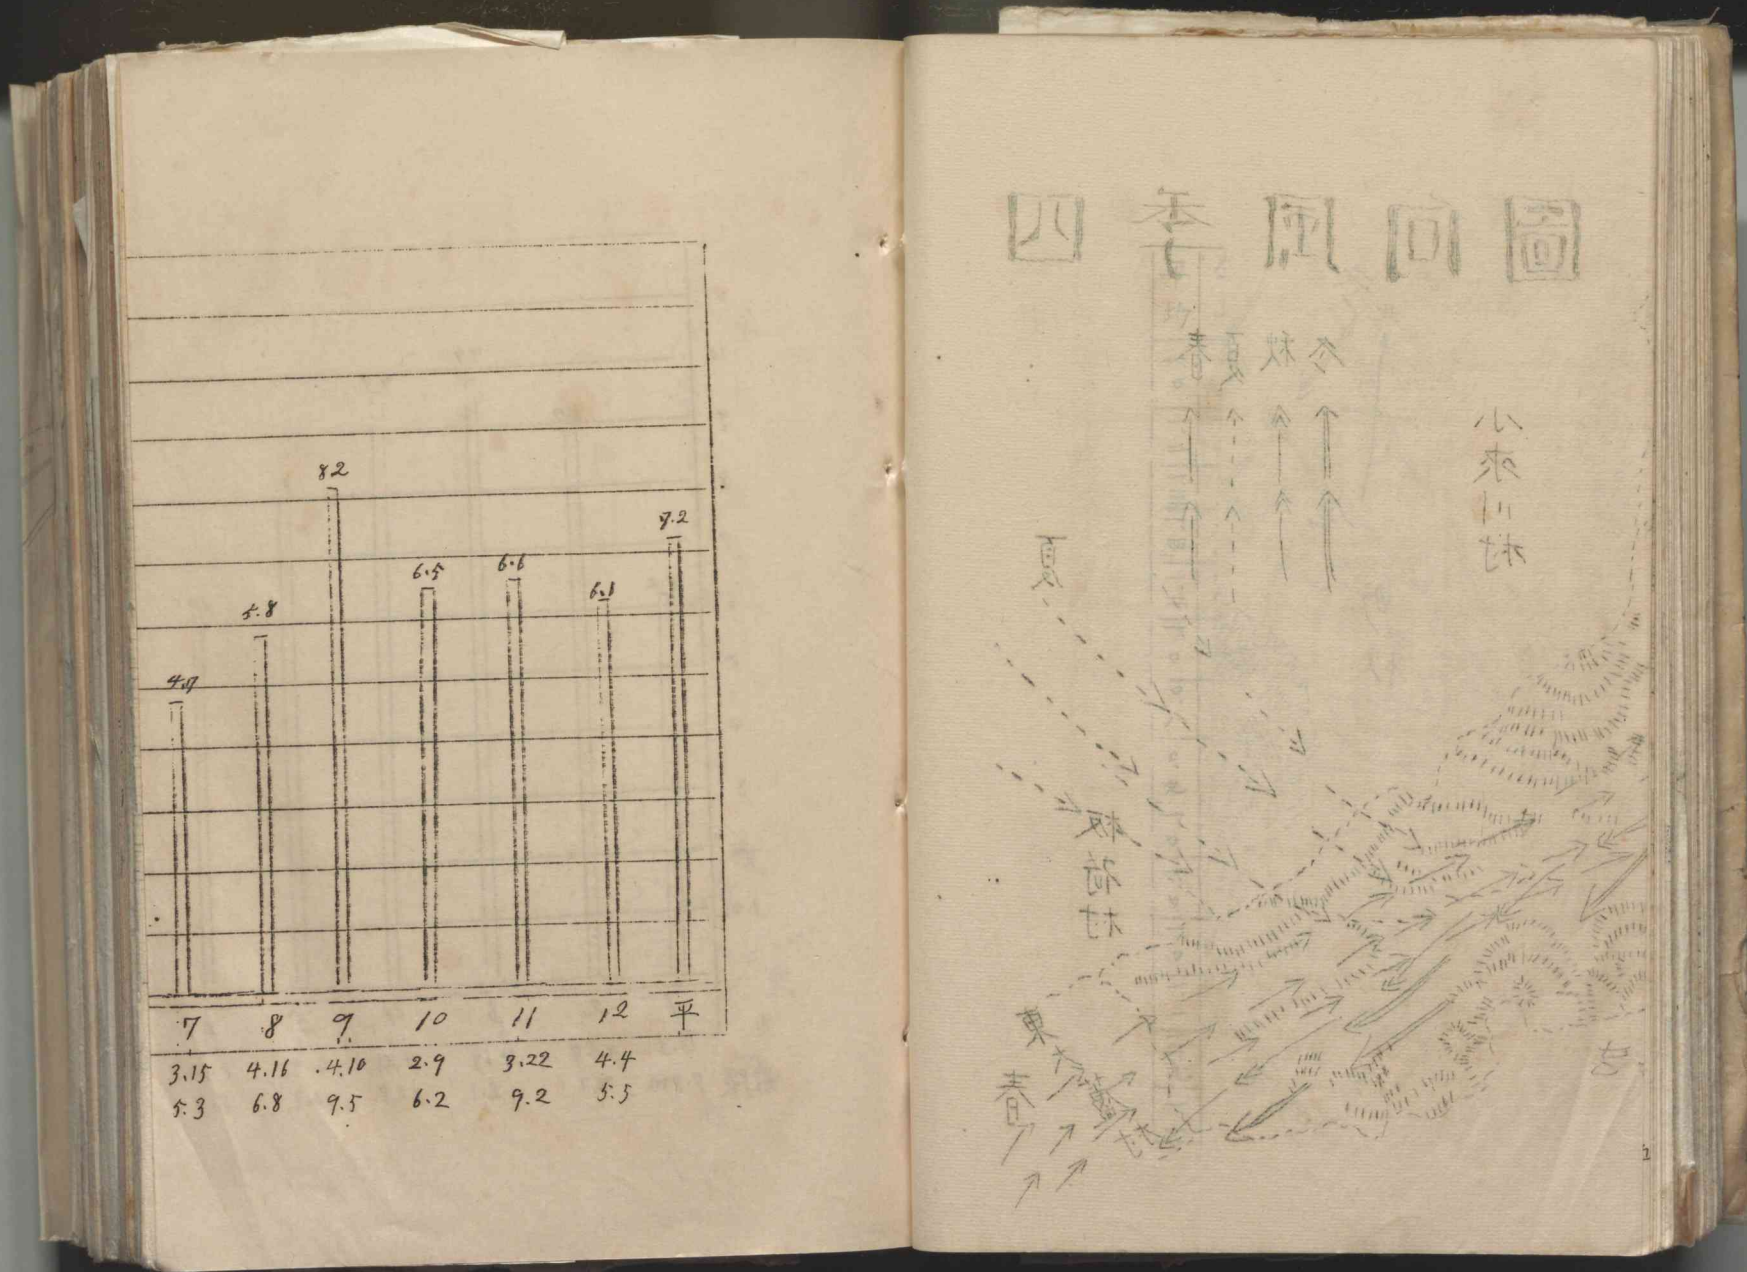 82
7.2
6.5
6.6
6.1
5.8
4.7
7 8 9 10 11 12 平
3.15 4.16 4.10 2.9 3.22 4.4
5.3 6.8 9.5 6.2 9.2 5.5
四季風向圖
春 夏 秋 冬
小來川村
夏
板荷村
東大蘆村
春